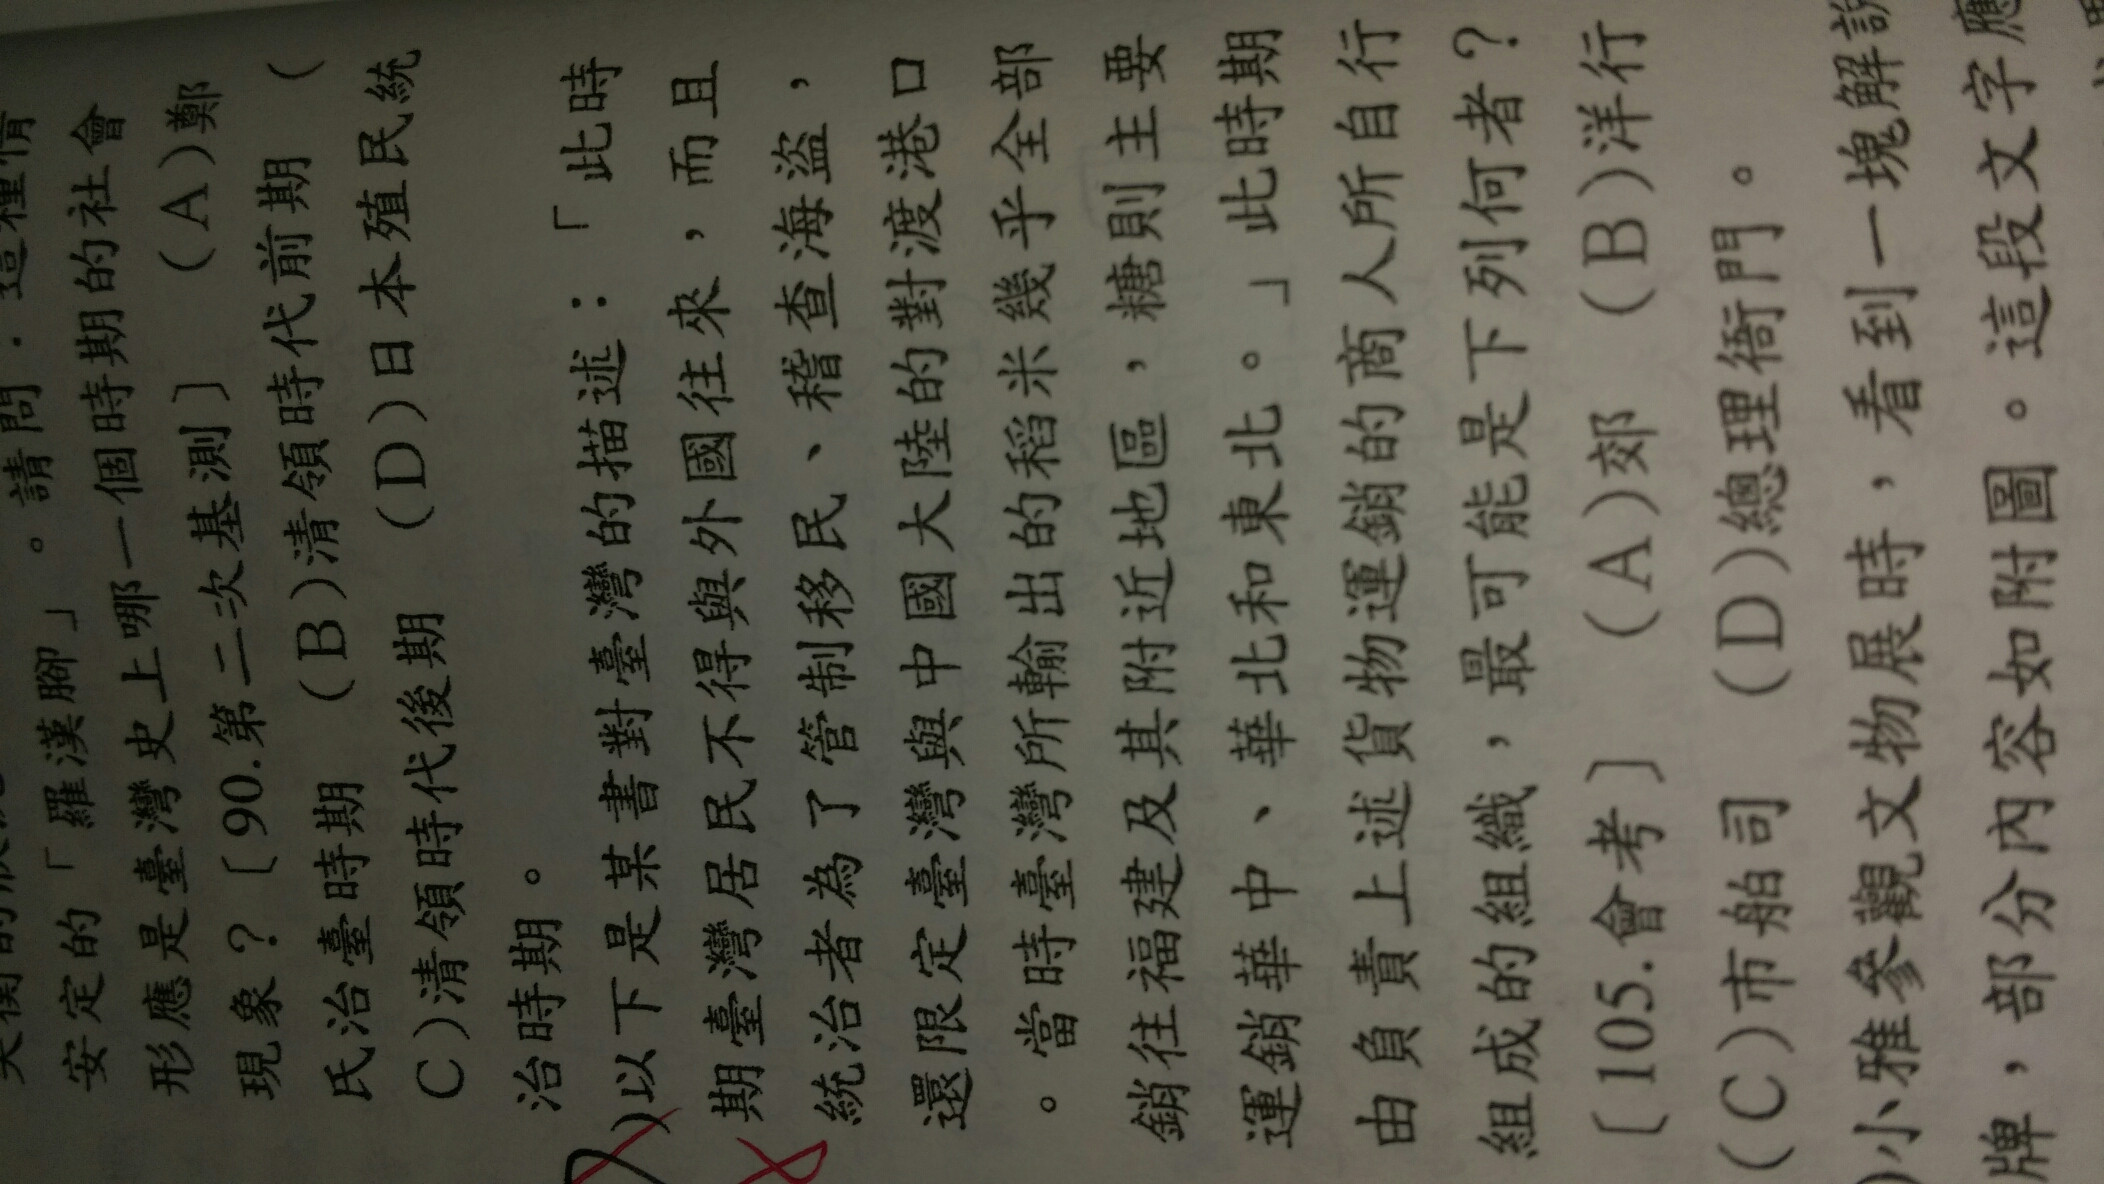 安定的「羅漢腳」。請問：這種情
形應是臺灣史上哪一個時期的社會
現象？〔90.第二次基測〕 (A)鄭
氏治臺時期 (B)清領時代前期 (
C)清領時代後期 (D)日本殖民統
治時期。
)以下是某書對臺灣的描述：「此時
期臺灣居民不得與外國往來，而且
統治者為了管制移民、稽查海盜，
還限定臺灣與中國大陸的對渡港口
。當時臺灣所輸出的稻米幾乎全部
銷往福建及其附近地區，糖則主要
運銷華中、華北和東北。」此時期
由負責上述貨物運銷的商人所自行
組成的組織，最可能是下列何者？
〔105.會考〕 (A)郊 (B)洋行
(C)市舶司 (D)總理衙門。
)小雅參觀文物展時，看到一塊解說
牌，部分內容如附圖。這段文字應